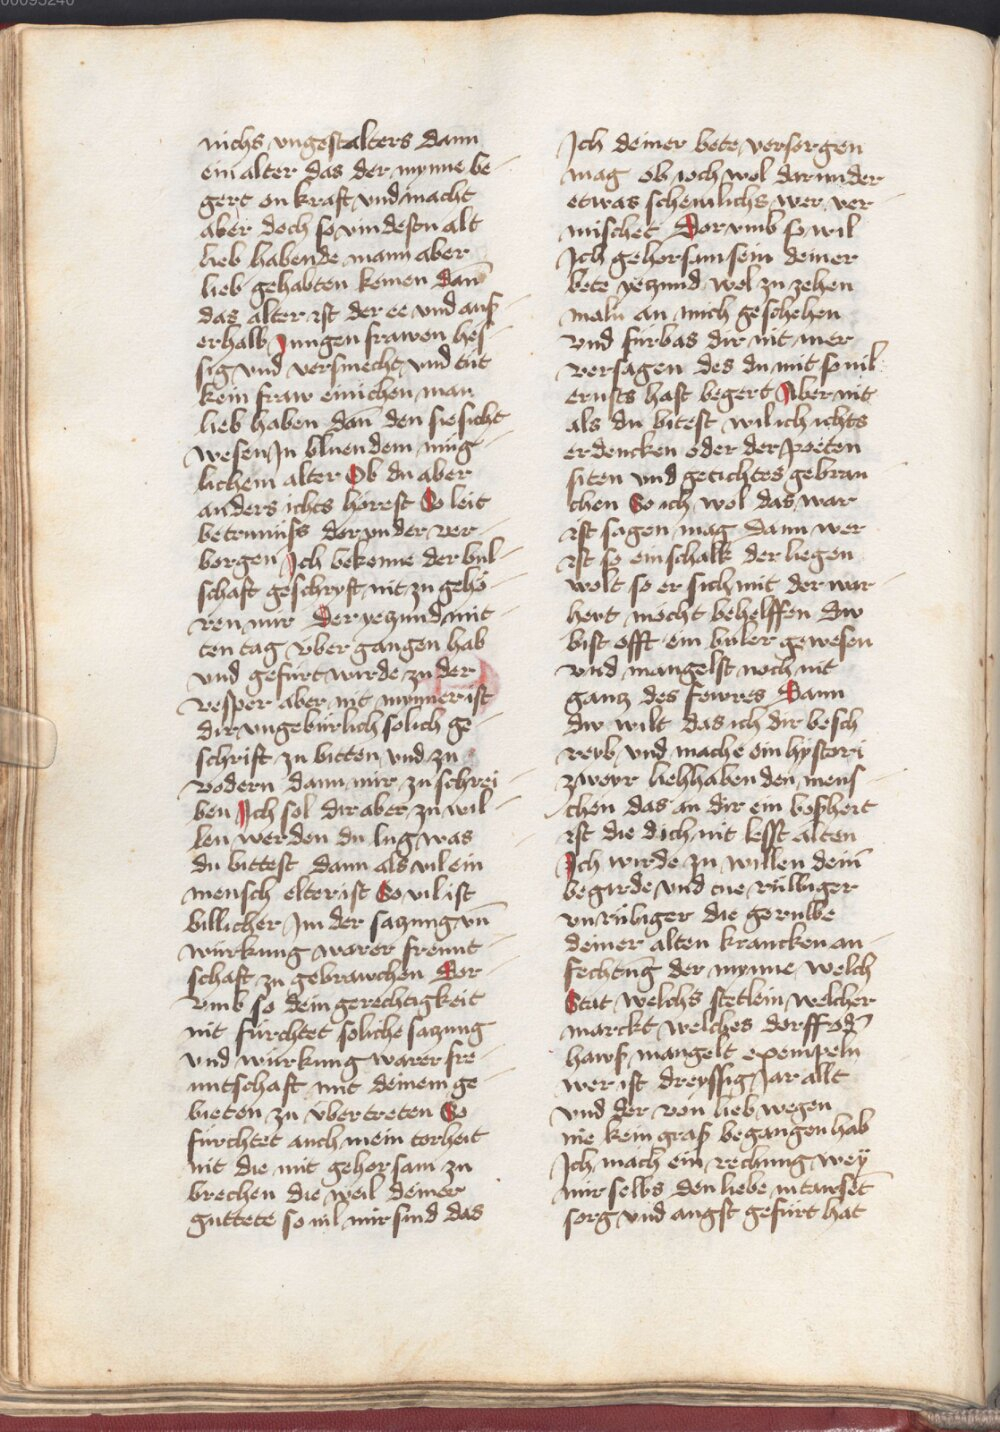 00095240
nichs ungestalters dann
ein alter das der mynne be
gert on kraft und macht
aber doch so vindestu alt
lieb habende mann aber
lieb gehabten keinen dan̄
das alter ist der ee und auß
erhalb Jungen frawen heß
sig und versmecht und tut
kein fraw einichen man
lieb haben dan̄ den sie sicht
wesen In bluendem müg
lichem alter Ob du aber
anders ichts hörest So leit
betrnüss dorunder ver
borgen Ich bekenne der bul
schaft geschryft nit zu gehö
ren mir Der yeczund mit
ten tag uber gangen hab
und gefürt wirde zu der
vesper aber nit mynner ist
dir ungebürlich solich ge
schrift zu bitten und zu
vodern dann mir zu schrei
ben Ich sol dir aber zu wil
len werden du lug was
du bittest dann als vil ein
mensch elter ist So vil ist
billicher Im der saczung vn̄
würkung warer freunt
schaft zu gebrawchen Dor
umb so dein gerechtigkeit
nit fürchtet soliche saczung
und würkung warer fre
untschaft mit deinem ge
bieten zu übertreten So
fürchtet auch mein torheit
nit die mit gehorsam zu
brechen die weil deiner
guttete so vil mir sind das
Ich deiner bete versorgen
mag ob ioch wol darunder
etwas schemlichs wer ver
mischet Dorumb so wil
Ich gehorsam sein deiner
bete yeczund wol zu zehen
maln an mich geschehen
und fürbas dir nit mer
versagen des du mit so vil
ernsts hast begert Aber nit
als du bitest wil ich ichts
erdencken oder der poeten
siten und getichtes gebrau
chen So ich wol das war
ist sagen mag dann wer
ist so ein schalk der liegen
wolt so er sich mit der war
heyt möcht behelffen Du
bist offt ein buler gewesen
und mangelst noch nit
gancz des fewres Dann
du wilt das ich dir besch
reyb und mache ein hystori
zweyr liebhabenden mens
chen das an dir ein boßheit
ist die dich nit lesst alten
Ich wirde zu willen dein̄
begirde und tue rülbiger
unrübiger die gerülbe
deiner alten krancken an
fechtūg der mynne welch
Stat welchs stetlein welcher
marckt welches dorff od̄
hawß mangelt exempeln
wer ist dreyssig Jar allt
und der von lieb wegen
nie kein graß begangen hab
Ich mach ein rechnung wey
mir selbs den liebe in tawset̄
sorg und angst gefürt hat